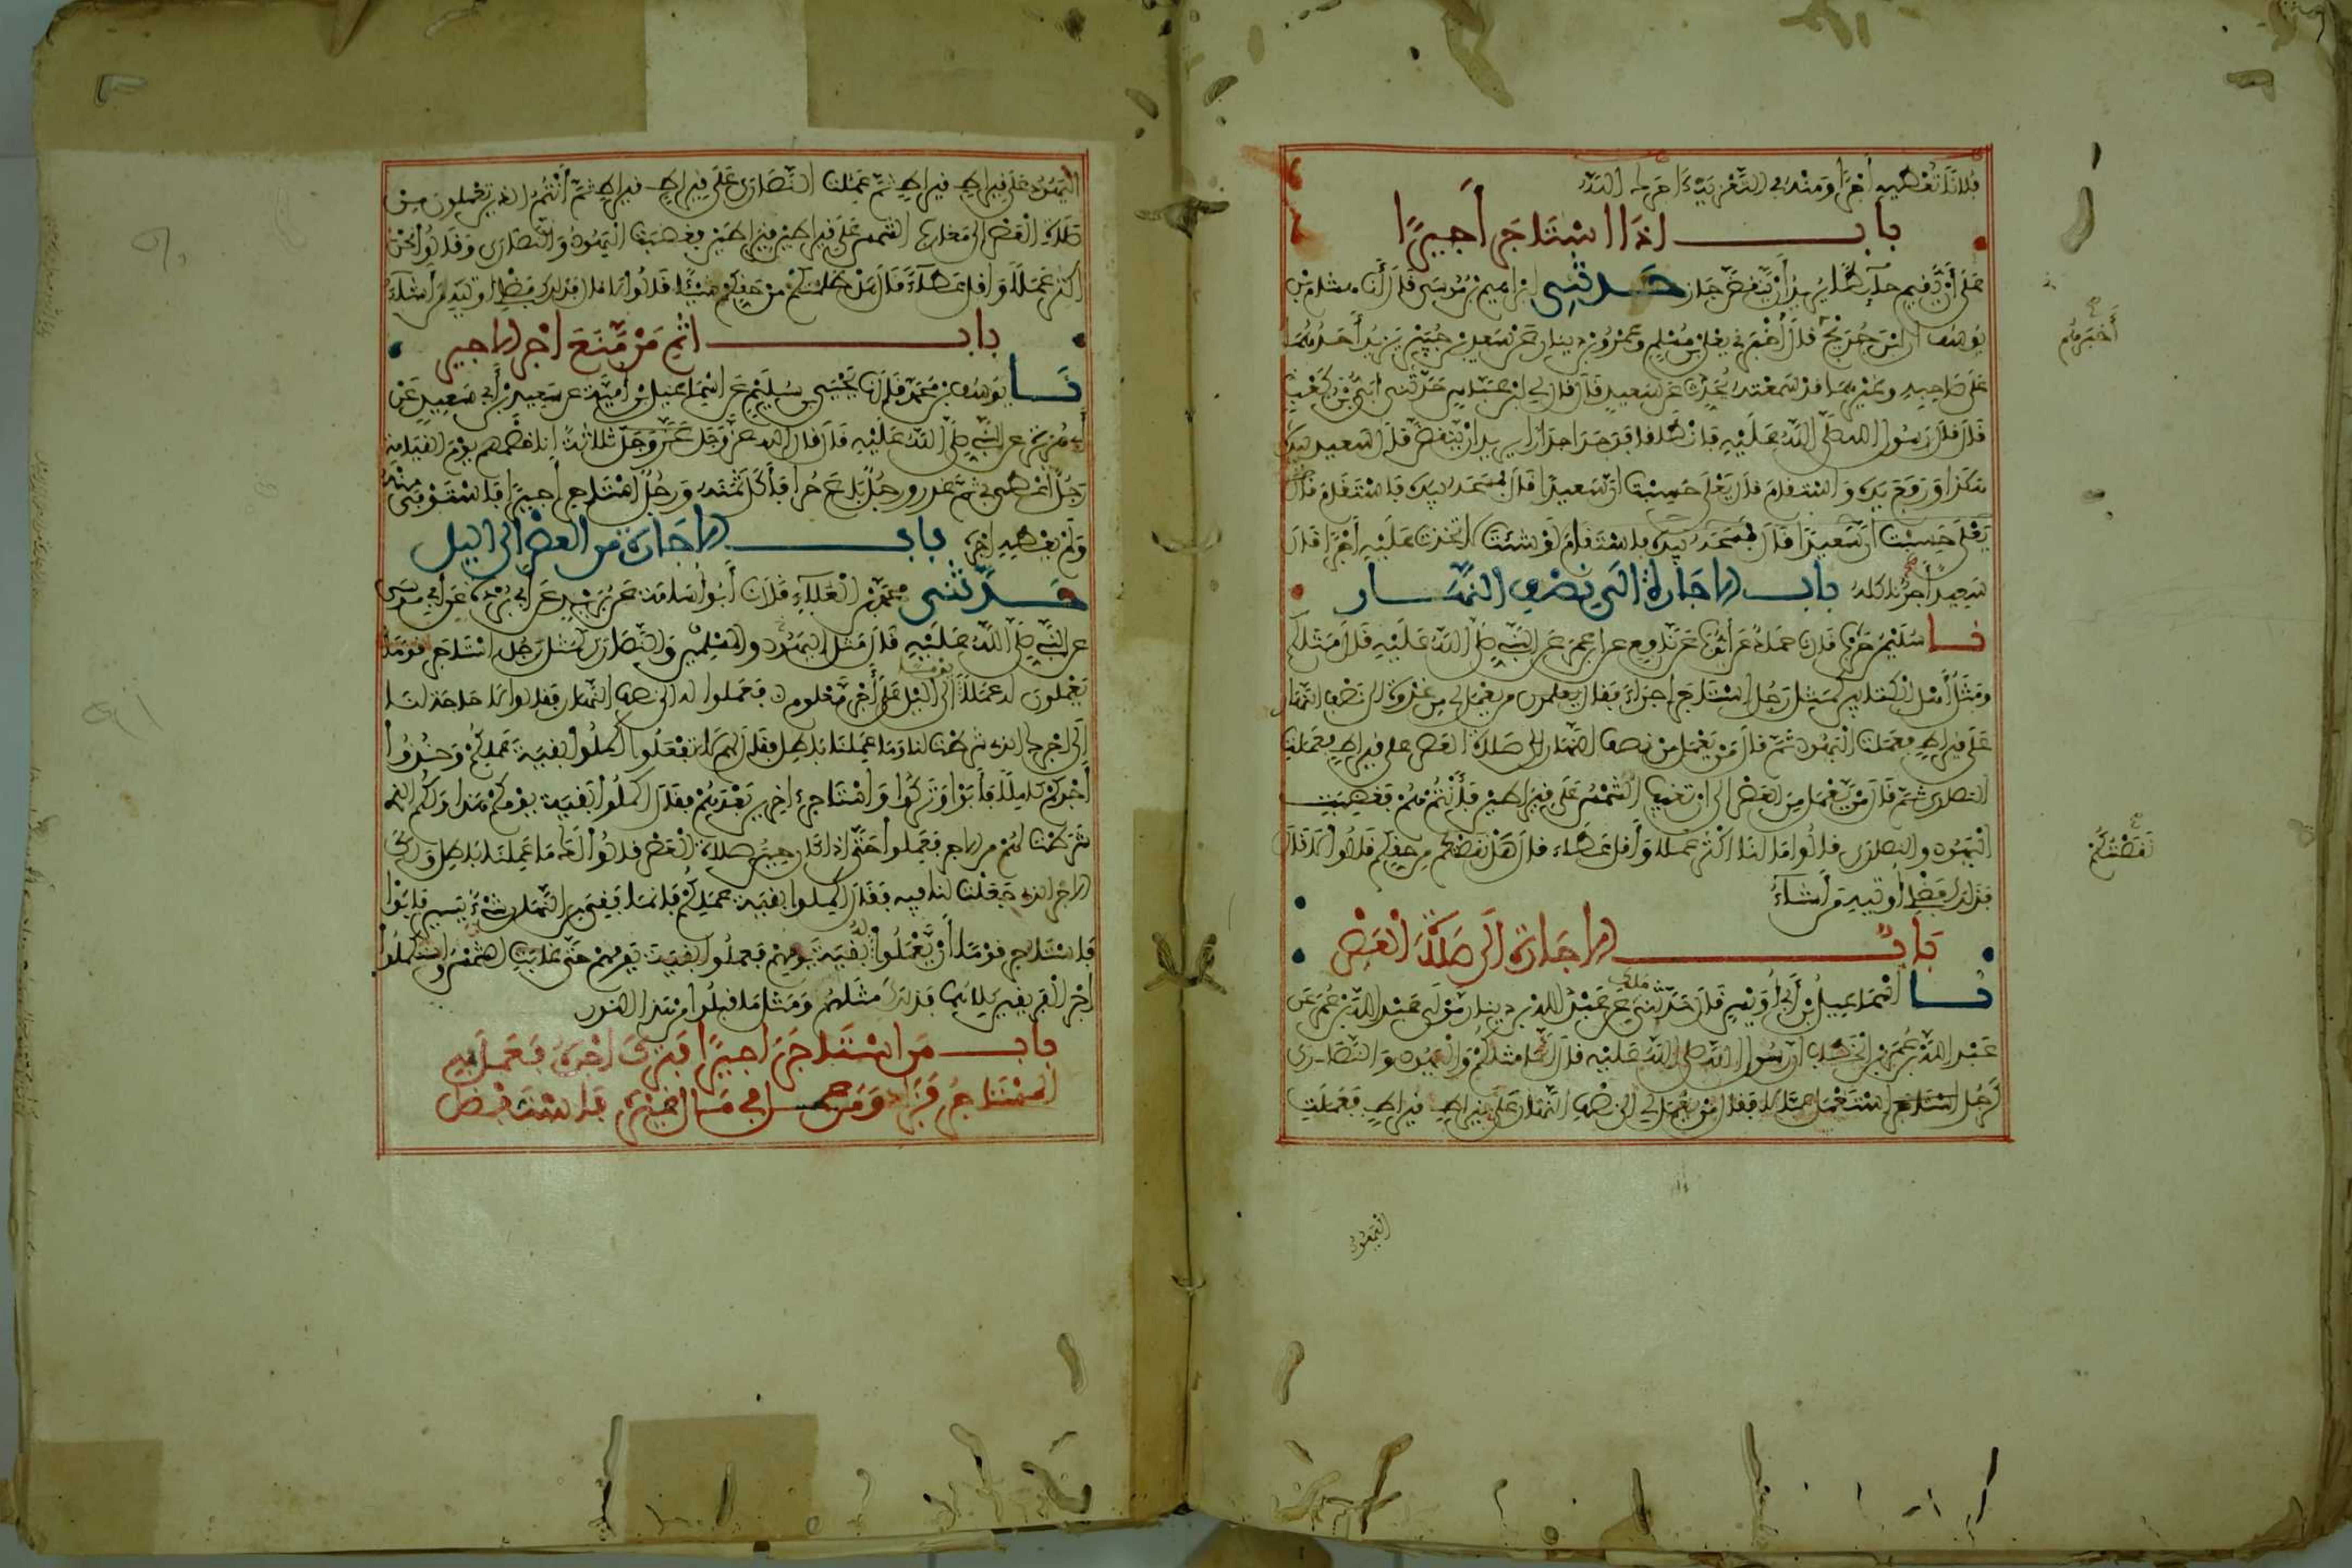 فلانا نعطيه أجرا ومنه في التعزية آجرك الله
باب إذا استأجر أجيرا
على أن يقيم حائطا يريد أن ينقض جاز حدثني إبراهيم بن موسى قال أنا هشام بن
يوسف أن ابن جريج قال أخبرني يعلى بن مسلم وعمرو بن دينار عن سعيد بن جبير يزيد أحدهما
على صاحبه وغيرهما قد سمعته يحدثه عن سعيد قال قال لي ابن عباس حدثني أبي بن كعب
قال قال رسول الله صلى الله عليه فانطلقا فوجدا جدارا يريد أن ينقض قال سعيد بيده
هكذا ورفع يديه فاستقام قال يعلى حسبت أن سعيدا قال فمسحه بيده فاستقام قال
يعلى حسبت أن سعيدا قال فمسحه بيده فاستقام لو شئت لتخذت عليه أجرا قال
سعيد أجر نأكله باب الإجارة إلى نصف النهار
نا سليمن بن حرب قال نا حماد عن أيوب عن نافع عن ابن عمر عن النبي صلى الله عليه قال مثلكم
ومثل أهل الكتابين كمثل رجل استأجر أجراء فقال من يعمل لي من غدوة إلى نصف النهار
على قيراط فعملت اليهود ثم قال من يعمل من نصف النهار إلى صلاة العصر على قيراط فعملت
النصارى ثم قال من يعمل من العصر إلى أن تغيب الشمس على قيراطين فأنتم هم فغضبت
اليهود والنصارى فقالوا ما لنا أكثر عملا وأقل عطاء قال هل نقصتكم من حقكم قالوا لا قال
فذلك فضلي أوتيه من أشاء
باب الإجارة إلى صلاة العصر
نا إسماعيل بن أبي أويس قال حدثني ملك عن عبد الله بن دينار مولى عبد الله بن عمر عن
عبد الله بن عمر بن الخطاب أن رسول الله صلى الله عليه قال إنما مثلكم واليهود والنصارى
كرجل استأجر استعمل عمالا فقال من يعمل لي إلى نصف النهار على قيراط قيراط فعملت
اليهود
أخبرهم
نقصتكم
اليهود على قيراط قيراط ثم عملت النصارى على قيراط قيراط ثم أنتم الذين تعملون من
صلاة العصر إلى مغارب الشمس على قيراطين قيراطين فغضبت اليهود والنصارى وقالوا نحن
أكثر عملا وأقل عطاء قال هل ظلمتكم من حقكم شيئا قالوا لا قال فذلك فضلي أوتيه من أشاء
باب إثم من منع أجر الأجير
نا يوسف بن محمد قال نا يحيى بن سليم عن إسماعيل بن أمية عن سعيد بن أبي سعيد عن
أبي هريرة عن النبي صلى الله عليه قال قال الله عز وجل ثلاثة أنا خصمهم يوم القيامة
رجل أعطى بي ثم غدر ورجل باع حرا فأكل ثمنه ورجل استأجر أجيرا فاستوفى منه
ولم يعطه أجره باب الإجارة من العصر إلى الليل
حدثني محمد بن العلاء قال نا أبو أسامة عن بريد عن أبي بردة عن أبي موسى
عن النبي صلى الله عليه قال مثل اليهود والمسلمين والنصارى كمثل رجل استأجر قوما
يعملون له عملا إلى الليل على أجر معلوم فعملوا له إلى نصف النهار فقالوا لا حاجة لنا
إلى أجرك الذي شرطت لنا وما عملنا باطل فقال لهم لا تفعلوا أكملوا بقية عملكم وخذوا
أجركم كاملا فأبوا وتركوا واستأجر آخرين بعدهم فقال أكملوا بقية يومكم هذا ولكم الذي
شرطت لهم من الأجر فعملوا حتى إذا كان حين صلاة العصر قالوا لك ما عملنا باطل ولك
الأجر الذي جعلت لنا فيه فقال أكملوا بقية عملكم فإنما بقي من النهار شيء يسير فأبوا
فاستأجر قوما أن يعملوا له بقية يومهم فعملوا بقية يومهم حتى غابت الشمس واستكملوا
أجر الفريقين كلاهما فذلك مثلهم ومثل ما قبلوا من هذا النور
باب من استأجر أجيرا فترك أجره فعمل فيه
المستأجر فزاد ومن عمل في مال غيره فاستفضل